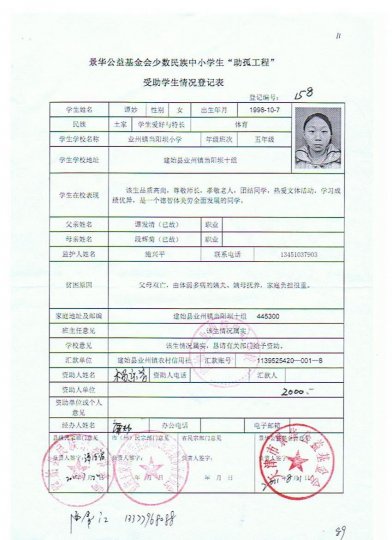 B
景华公益基金会少数民族中小学生“助孤工程”
受助学生情况登记表
登记编号: 158
学生姓名 谭妙 性别 女 出生年月 1998-10-7
民族 土家 学生爱好与特长 体育
学生学校名称 业州镇当阳坝小学 年级班次 五年级
学生学校地址 建始县业州镇当阳坝十组
学生在校表现 该生品质高尚，尊敬师长，孝敬老人，团结同学，热爱文体活动，学习成
绩优异，是一个德智体美劳全面发展的同学。
父亲姓名 谭发清（已故） 职业
母亲姓名 段辉菊（已故） 职业
监护人姓名 施兴平 联系电话 13451037903
贫困原因 父母双亡，由体弱多病的姨夫、姨母抚养，家庭负担很重。
家庭地址及邮编 建始县业州镇当阳坝十组 445300
班主任意见 该生情况属实。
学校意见 该生情况属实，恳请有关部门给予资助。
汇款单位 建始县业州镇农村信用社 汇款账号 1139525420-001-8
资助人姓名 资助人电话 汇款人
资助人单位 2000.-
资助单位或个人
意见
经办人姓名 办公电话 电子邮箱
县民宗部门意见 市（州）民宗部门意见 省民宗部门意见
负责人签字: 负责人签字: 负责人签字:
年 月 日 年 月 日
89